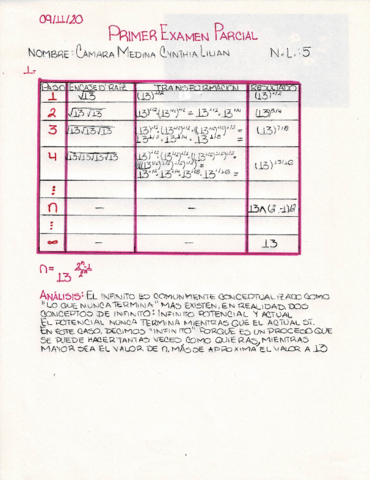 09/11/20
PRIMER EXAMEN PARCIAL
NOMBRE: CAMARA MEDINA CYNTHIA LILIAN N.L.: 5
1.
PASO ENCASE D'RAIZ TRANSFORMACIÓN RESULTADO
1 √13 (13)^1/2 (13)^1/2
2 √13√13 (13)^1/2·(13^1/2)^1/2 = 13^1/2·13^1/4 (13)^3/4
3 √13√13√13 (13)^7/8
4 √13√13√13√13 (13)^15/16
⋮
n – –
⋮
∞ – – 13
n= 13 2ⁿ-1/2ⁿ
ANÁLISIS: EL INFINITO ES COMUNMENTE CONCEPTUALIZADO COMO
"LO QUE NUNCA TERMINA" MAS EXISTEN, EN REALIDAD, DOS
CONCEPTOS DE INFINITO: INFINITO POTENCIAL Y ACTUAL
EL POTENCIAL NUNCA TERMINA MIENTRAS QUE EL ACTUAL SÍ.
EN ESTE CASO, DECIMOS "INFINITO" PORQUE ES UN PROCESO QUE
SE PUEDE HACER TANTAS VECES COMO QUIERAS, MIENTRAS
MAYOR SEA EL VALOR DE n, MÁS SE APROXIMA EL VALOR A 13